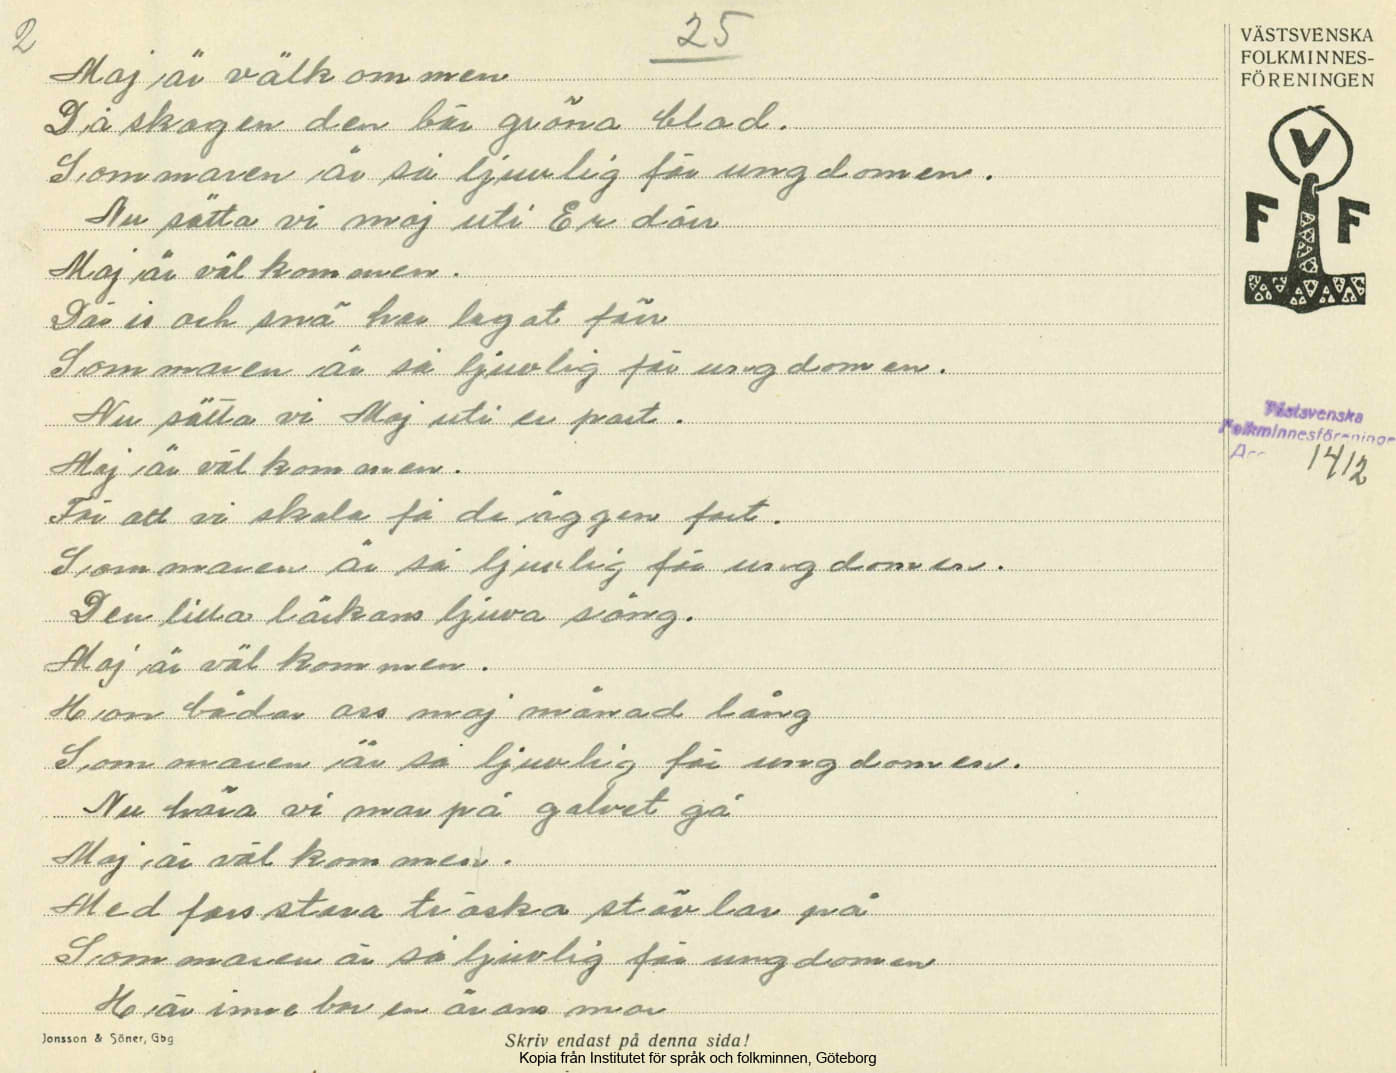 2
25
VÄSTSVENSKA
FOLKMINNES-
FÖRENINGEN
V
F F
Maj är välkommen
Då skogen den bär gröna blad.
Sommaren är så ljuvlig för ungdomen.
Nu sätta vi maj uti Er dörr
Maj är välkommen.
Där is och snö har legat förr
Sommaren är så ljuvlig för ungdomen.
Nu sätta vi Maj uti er port.
Maj är välkommen.
För att vi skola få de äggen fort.
Sommaren är så ljuvlig för ungdomen.
Den lilla lärkans ljuva sång.
Maj är välkommen.
Hon bådar oss maj månad lång
Sommaren är så ljuvlig för ungdomen.
Nu höra vi mor på golvet gå
Maj är välkommen.
Med fars stora träska stövlar på
Sommaren är så ljuvlig för ungdomen
Här inne bor en ärans mor
Västsvenska
Folkminnesföreninge
Acc 1412
Jonsson & Söner, Gbg
Skriv endast på denna sida!
Kopia från Institutet för språk och folkminnen, Göteborg